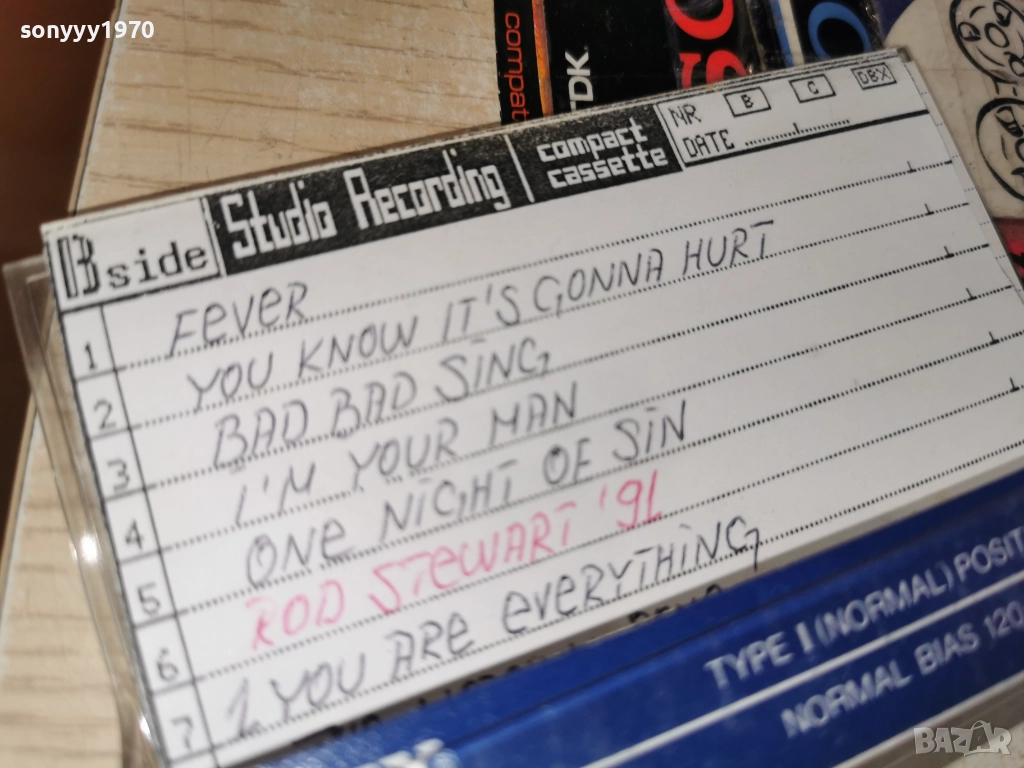 sonyyy1970
compat
TDK
B side Studio Recording | compact cassette NR B C DBX
DATE
1 FeVER
2 YOU KNOW IT'S GONNA HURT
3 BAD BAD SING
4 I'M YOUR MAN
5 ONe NiGHT OF SiN
6 ROD STeWART '91
7 1. YOU ARe eVeRYTHiNG
TYPE I (NORMAL) POSIT
NORMAL BIAS 120
BAZAR